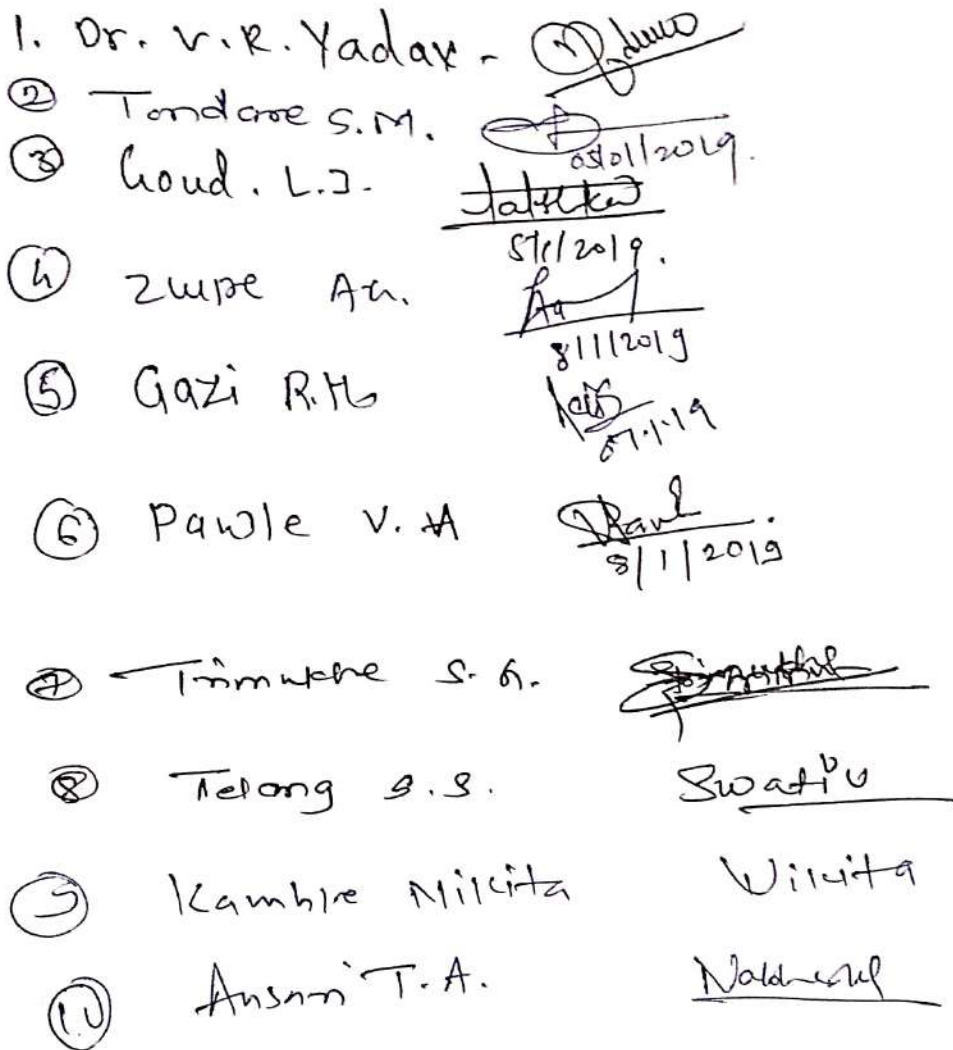 1. Dr. V.R. Yadav -
2 Tondare S.M.
05/01/2019.
3 Goud. L.J.
5/1/2019.
4 Zulpe A.G.
8/1/2019
5 Gazi R.H.
07.1.19
6 Pawle V.A
8/1/2019
7 Trimukhe S.G.
8 Telang S.S. Swati
9 Kamble Nikita Nikita
10 Ansari T.A.